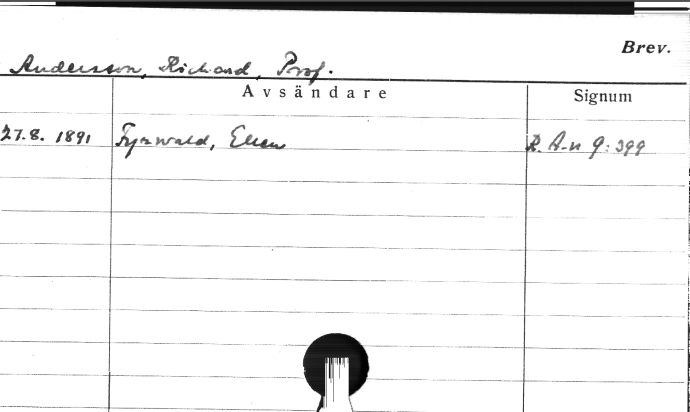 Brev.
Andersson, Richard, Prof.
Avsändare Signum
27.8. 1891 Fyrwald, Ellen R. A-n 9:399